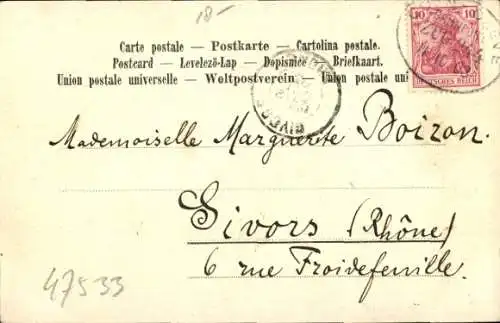 18-
Carte postale — Postkarte — Cartolina postale.
Postcard — Levelező-Lap — Dopisnice — Briefkaart.
Union postale universelle — Weltpostverein — Union postale uni
10 10
DEUTSCHES REICH
GIVORS
Mademoiselle Marguerite Boizon.
Givors (Rhône)
6 rue Froidefeuille.
47533